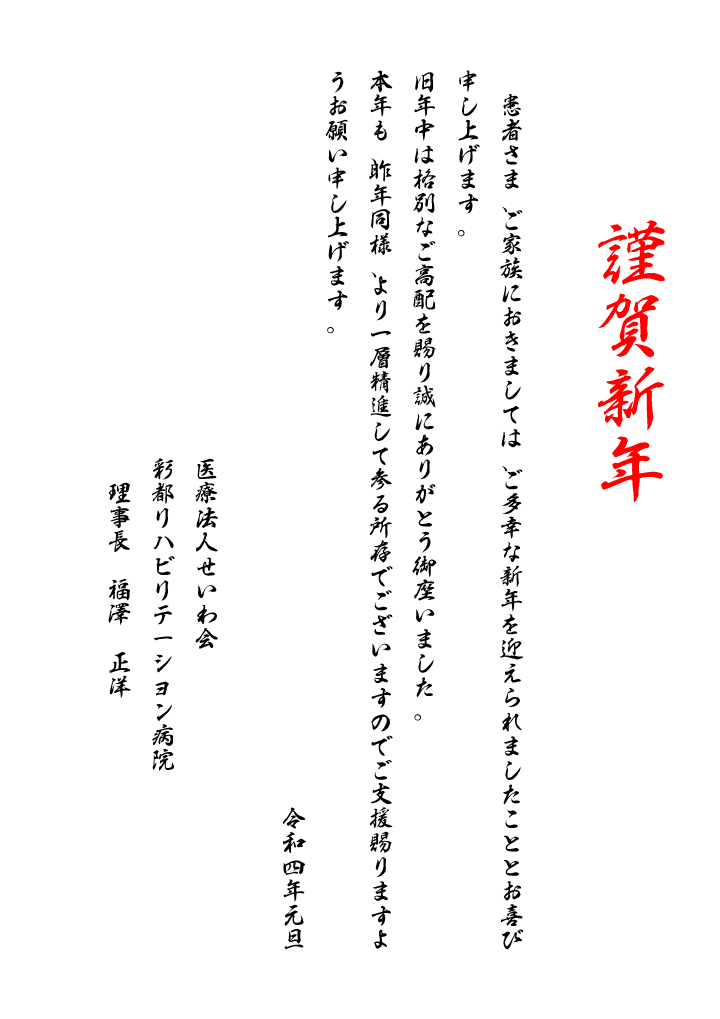 謹賀新年
患者さま、ご家族におきましては、ご多幸な新年を迎えられましたこととお喜び
申し上げます。
旧年中は格別なご高配を賜り誠にありがとう御座いました。
本年も、昨年同様、より一層精進して参る所存でございますのでご支援賜りますよ
うお願い申し上げます。
令和四年元旦
医療法人せいわ会
彩都リハビリテーション病院
理事長　福澤　正洋